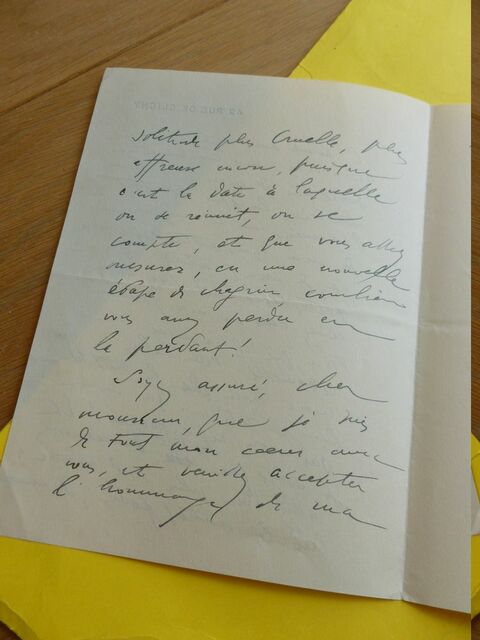 42, RUE DE CLICHY
solitude plus cruelle, plus
affreuse encore, puisque
c'est la date à laquelle
on se réunit, on se
compte, et que vous allez
mesurer, en une nouvelle
étape de chagrin combien
vous avez perdu en
la perdant!
Soyez assuré, cher
monsieur, que je suis
de tout mon coeur avec
vous, et veuillez accepter
l'hommage de ma